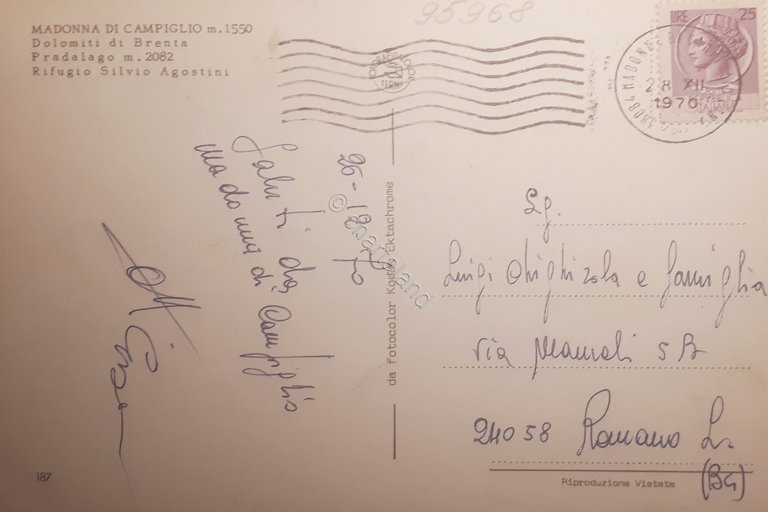 95968
MADONNA DI CAMPIGLIO m. 1550
Dolomiti di Brenta
Pradalago m. 2082
Rifugio Silvio Agostini
LIRE 25
28 XII
1970
26-12-70
Saluti da
Madonna di Campiglio
© Charta land
da fotocolor Kodak Ektachrome
Sg.
Luigi Ghighizola e famiglia
via Mameli 5 B
24058 Romano L.
(BG)
187
Riproduzione Vietata